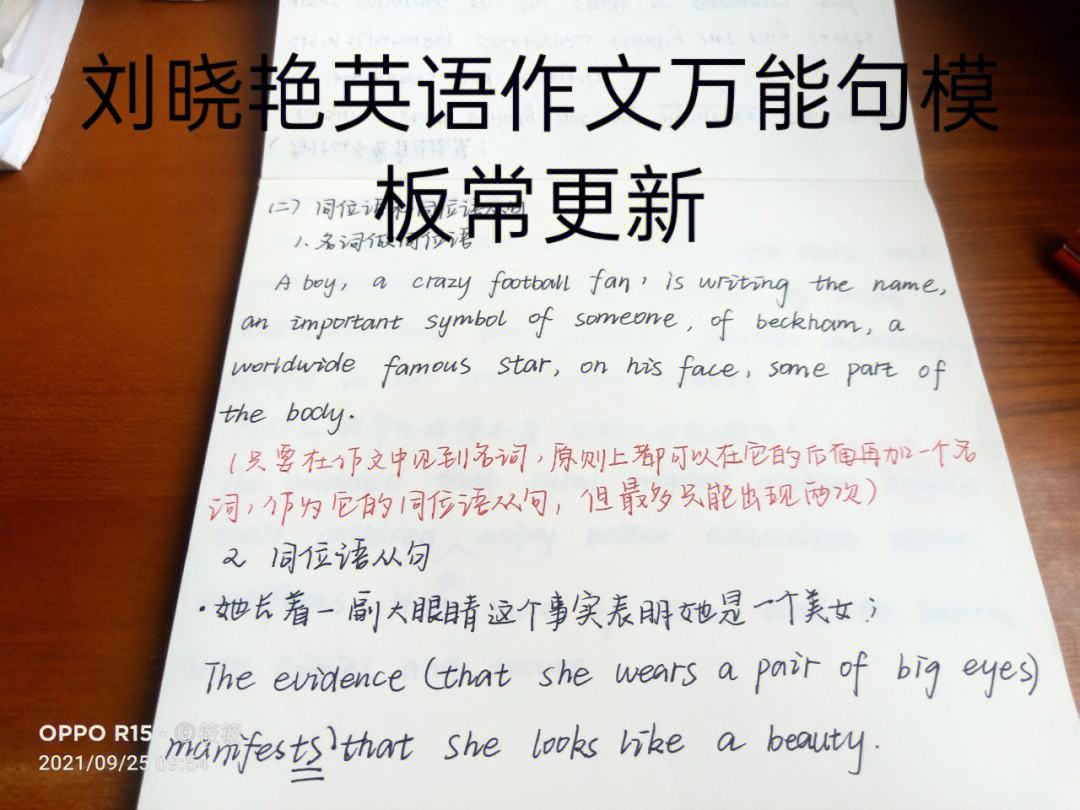 刘晓艳英语作文万能句模
板常更新
(二) 同位语和同位语从句
1. 名词做同位语
A boy, a crazy football fan, is writing the name,
an important symbol of someone, of beckham, a
worldwide famous star, on his face, some part of
the body.
(只要在作文中见到名词,原则上都可以在它的后面再加一个名
词,作为它的同位语从句,但最多只能出现两次)
2 同位语从句
·她长着一副大眼睛这个事实表明她是一个美女;
The evidence (that she wears a pair of big eyes)
manifests that she looks like a beauty.
OPPO R15 · ©筱筱
2021/09/25 09:54